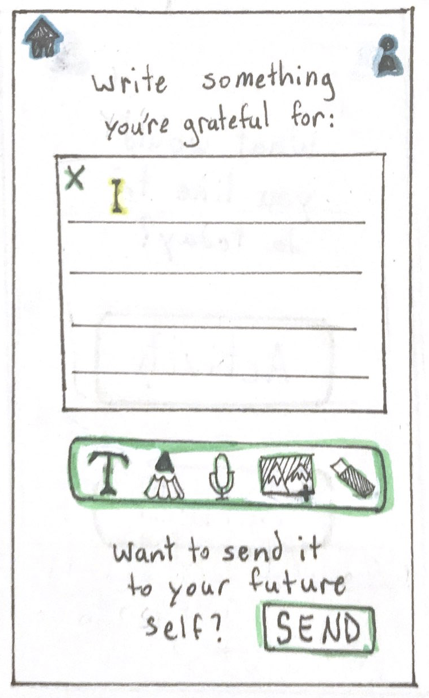 Write something
you're grateful for:
X
T
Want to send it
to your future
self? SEND